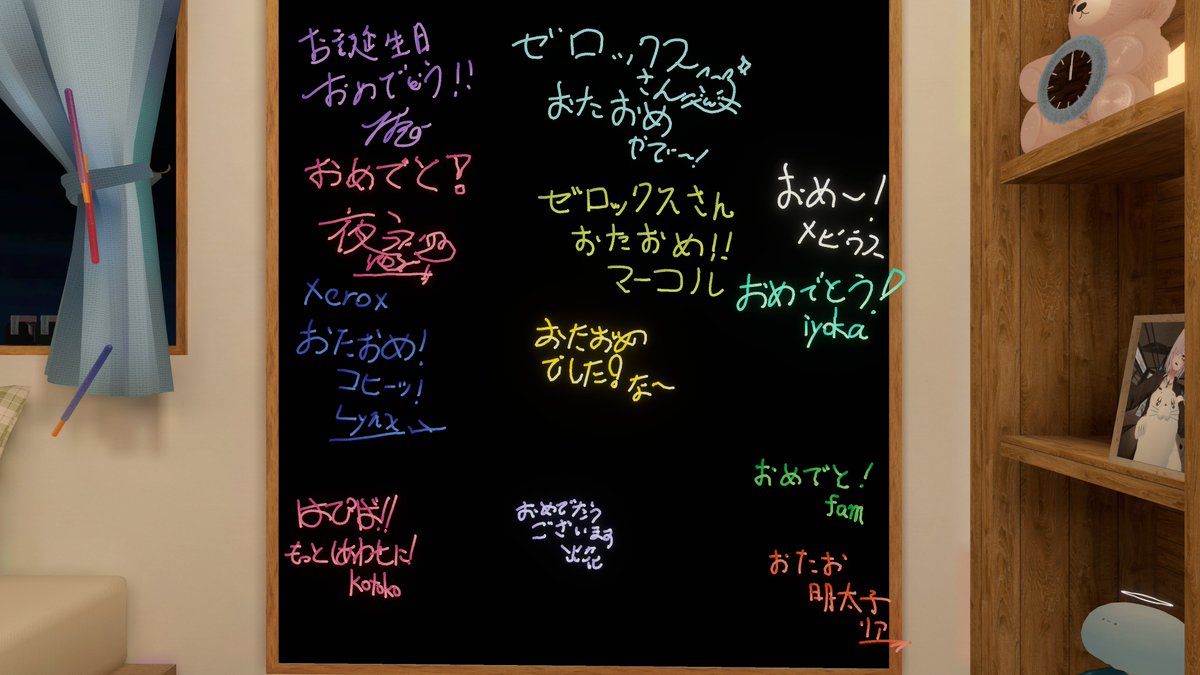 お誕生日
おめでとう!!
おめでと!
夜
Xerox
おたおめ!
コヒーッ!
Lynx
はぴば!!
もっとしあわせに!
kotoko
ゼロックス
さん
おたおめ
やでー!
ゼロックスさん
おたおめ!!
マーコル
おたおめ
でした!
な〜
おめでとう
ございます
おめ〜!
メビウス
おめでとう!
iyoka
おめでと!
fam
おたお
明太子
リア